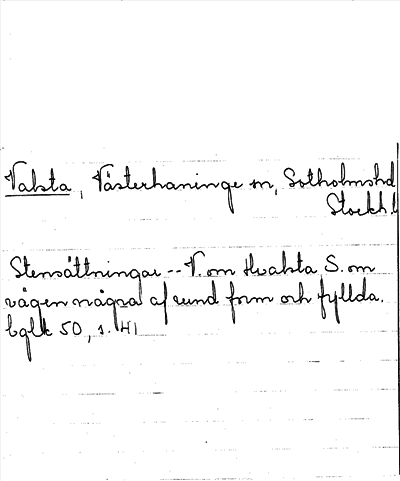 Valsta, Västerhaninge sn, Sotholmshd
Stockh.l
Stensättningar -- V. om Hvalsta S. om
vägen några af rund form och fyllda.
bglk 50, s. 41